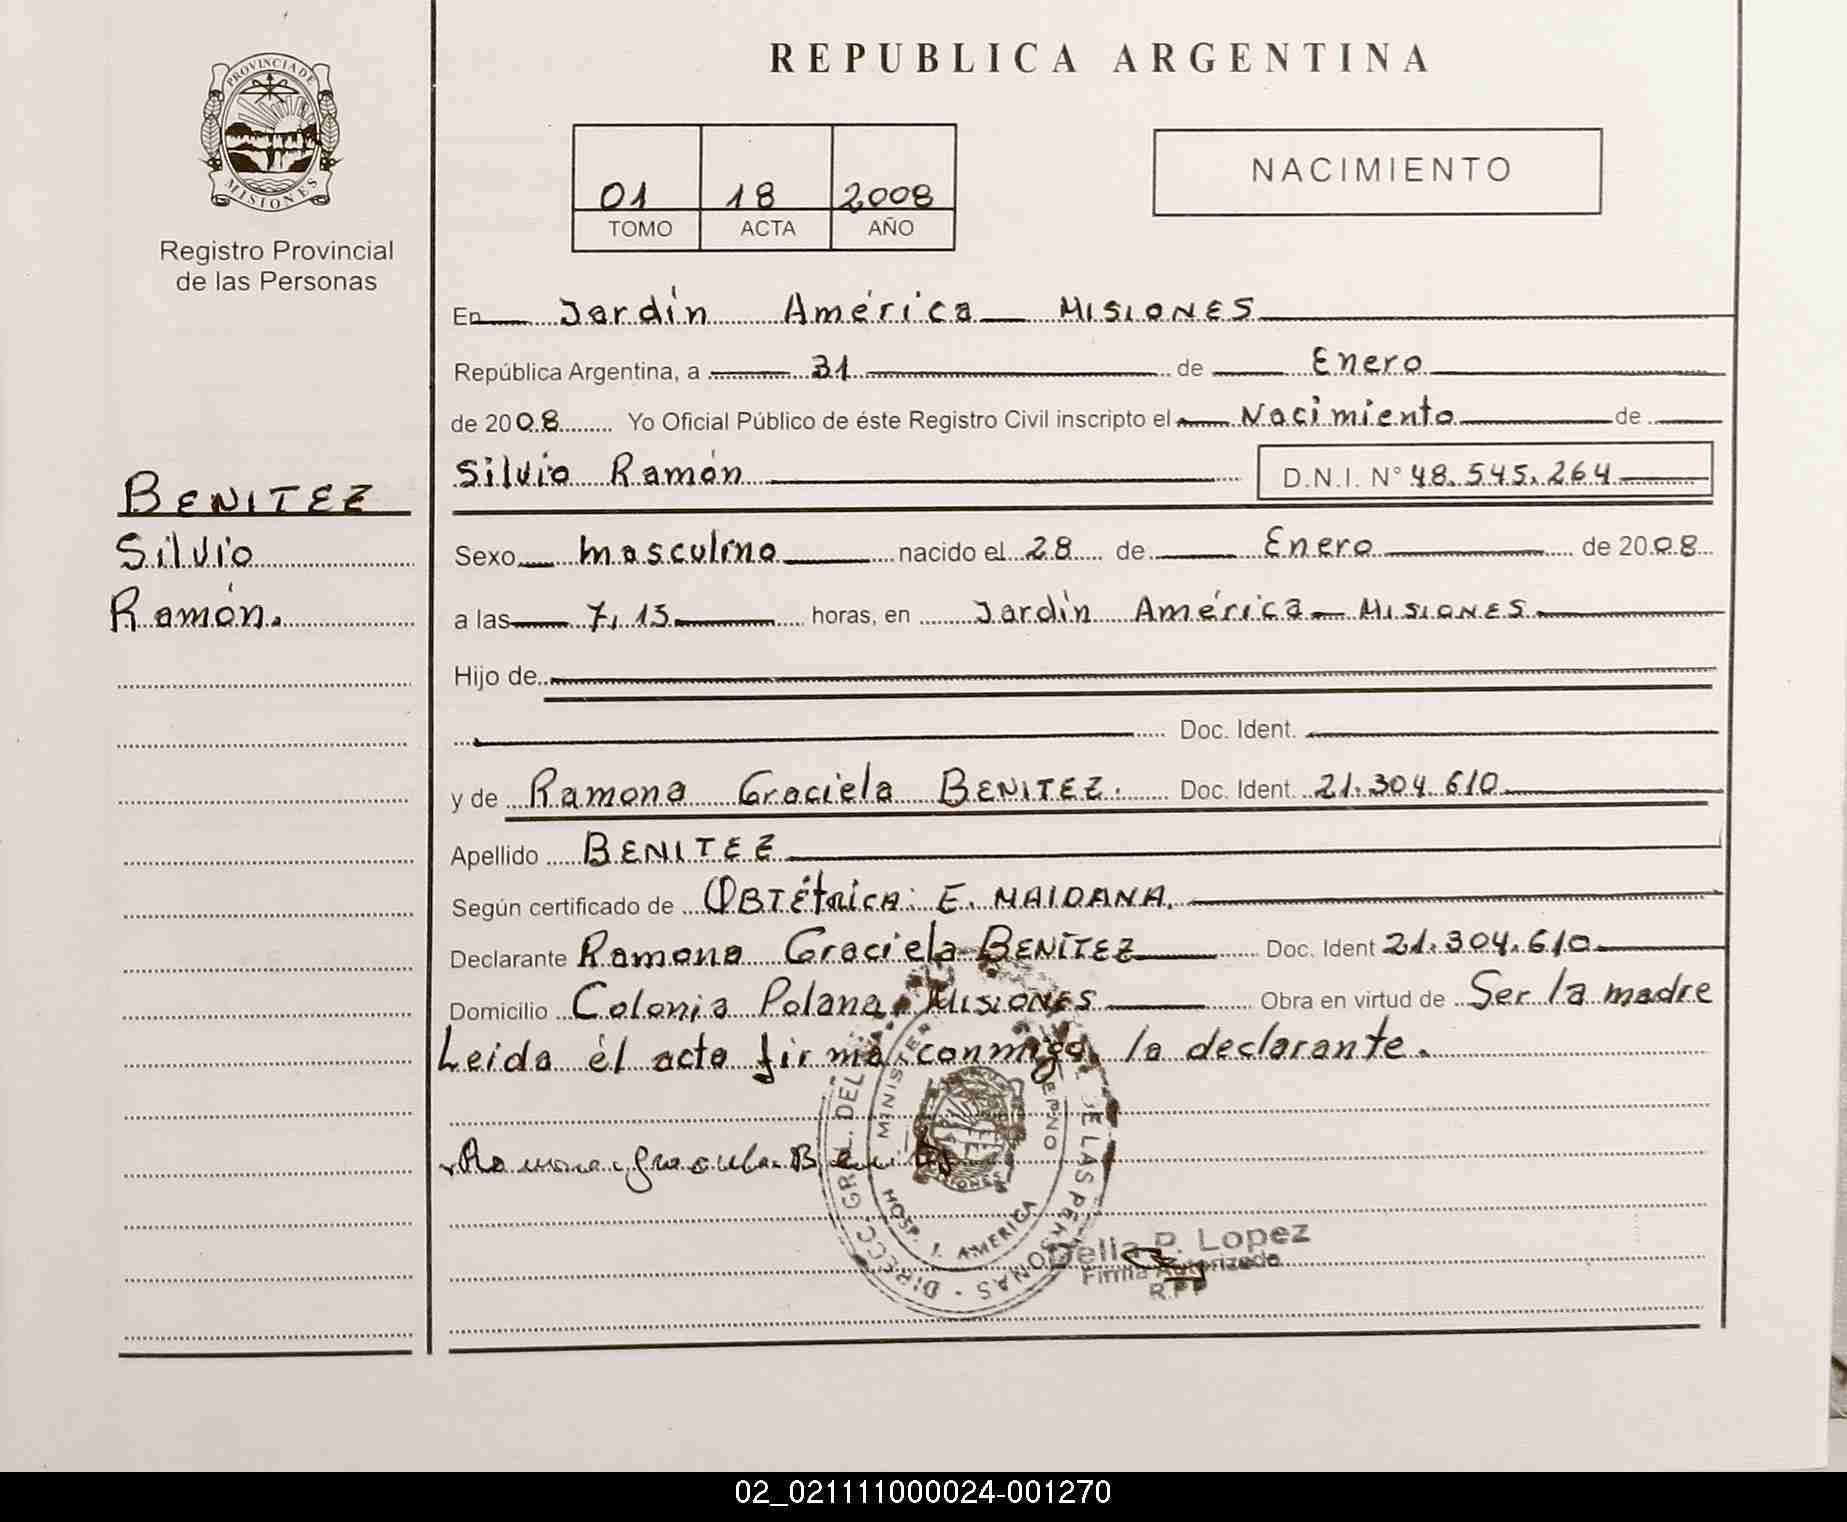 PROVINCIA DE
MISIONES
Registro Provincial
de las Personas
BENITEZ
Silvio
Ramón.
REPUBLICA ARGENTINA
01 18 2008
TOMO ACTA AÑO
NACIMIENTO
En Jardín América MISIONES
República Argentina, a 31 de Enero
de 2008 Yo Oficial Público de éste Registro Civil inscripto el Nacimiento de
Silvio Ramón D.N.I. N° 48.545.264
Sexo masculino nacido el 28 de Enero de 2008
a las 7,15 horas, en Jardín América MISIONES
Hijo de
Doc. Ident.
y de Ramona Graciela BENITEZ. Doc. Ident. 21.304.610
Apellido BENITEZ
Según certificado de OBTétrica: E. MAIDANA.
Declarante Ramona Graciela BENITEZ Doc. Ident 21.304.610
Domicilio Colonia Polana MISIONES Obra en virtud de Ser la madre
Leida él acta firma conmigo la declarante.
DIRECCC. GRAL. DEL DE LAS PERSONAS
HOSP. J. AMERICA
Delia P. Lopez
Firma Autorizada
R.P.P
02_021111000024-001270